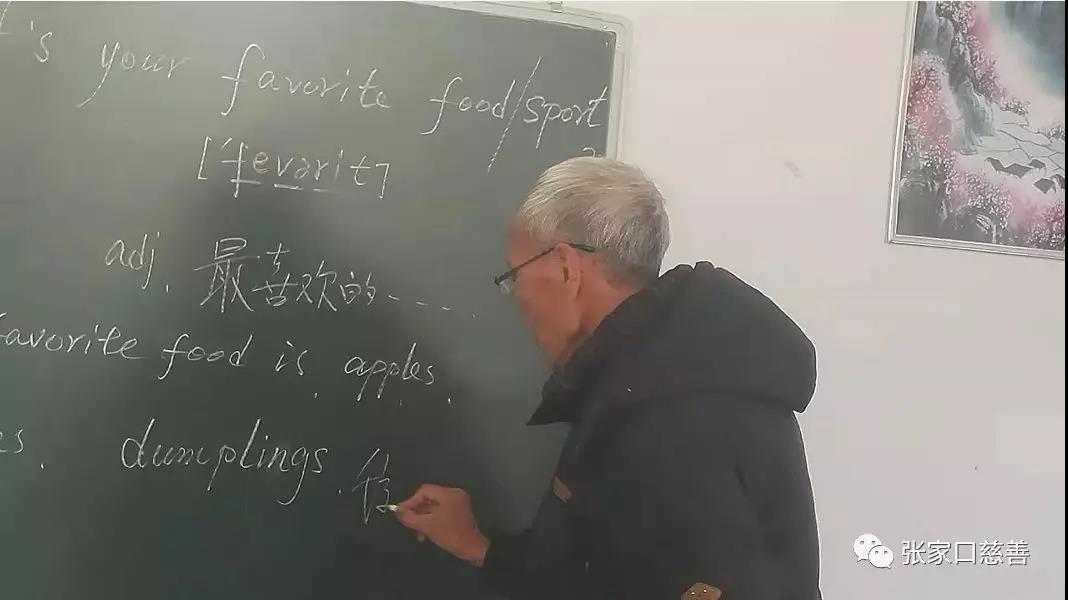 's your favorite food/sport
?
['fevərit]
adj. 最喜欢的----.
favorite food is apples.
es. dumplings.
张家口慈善